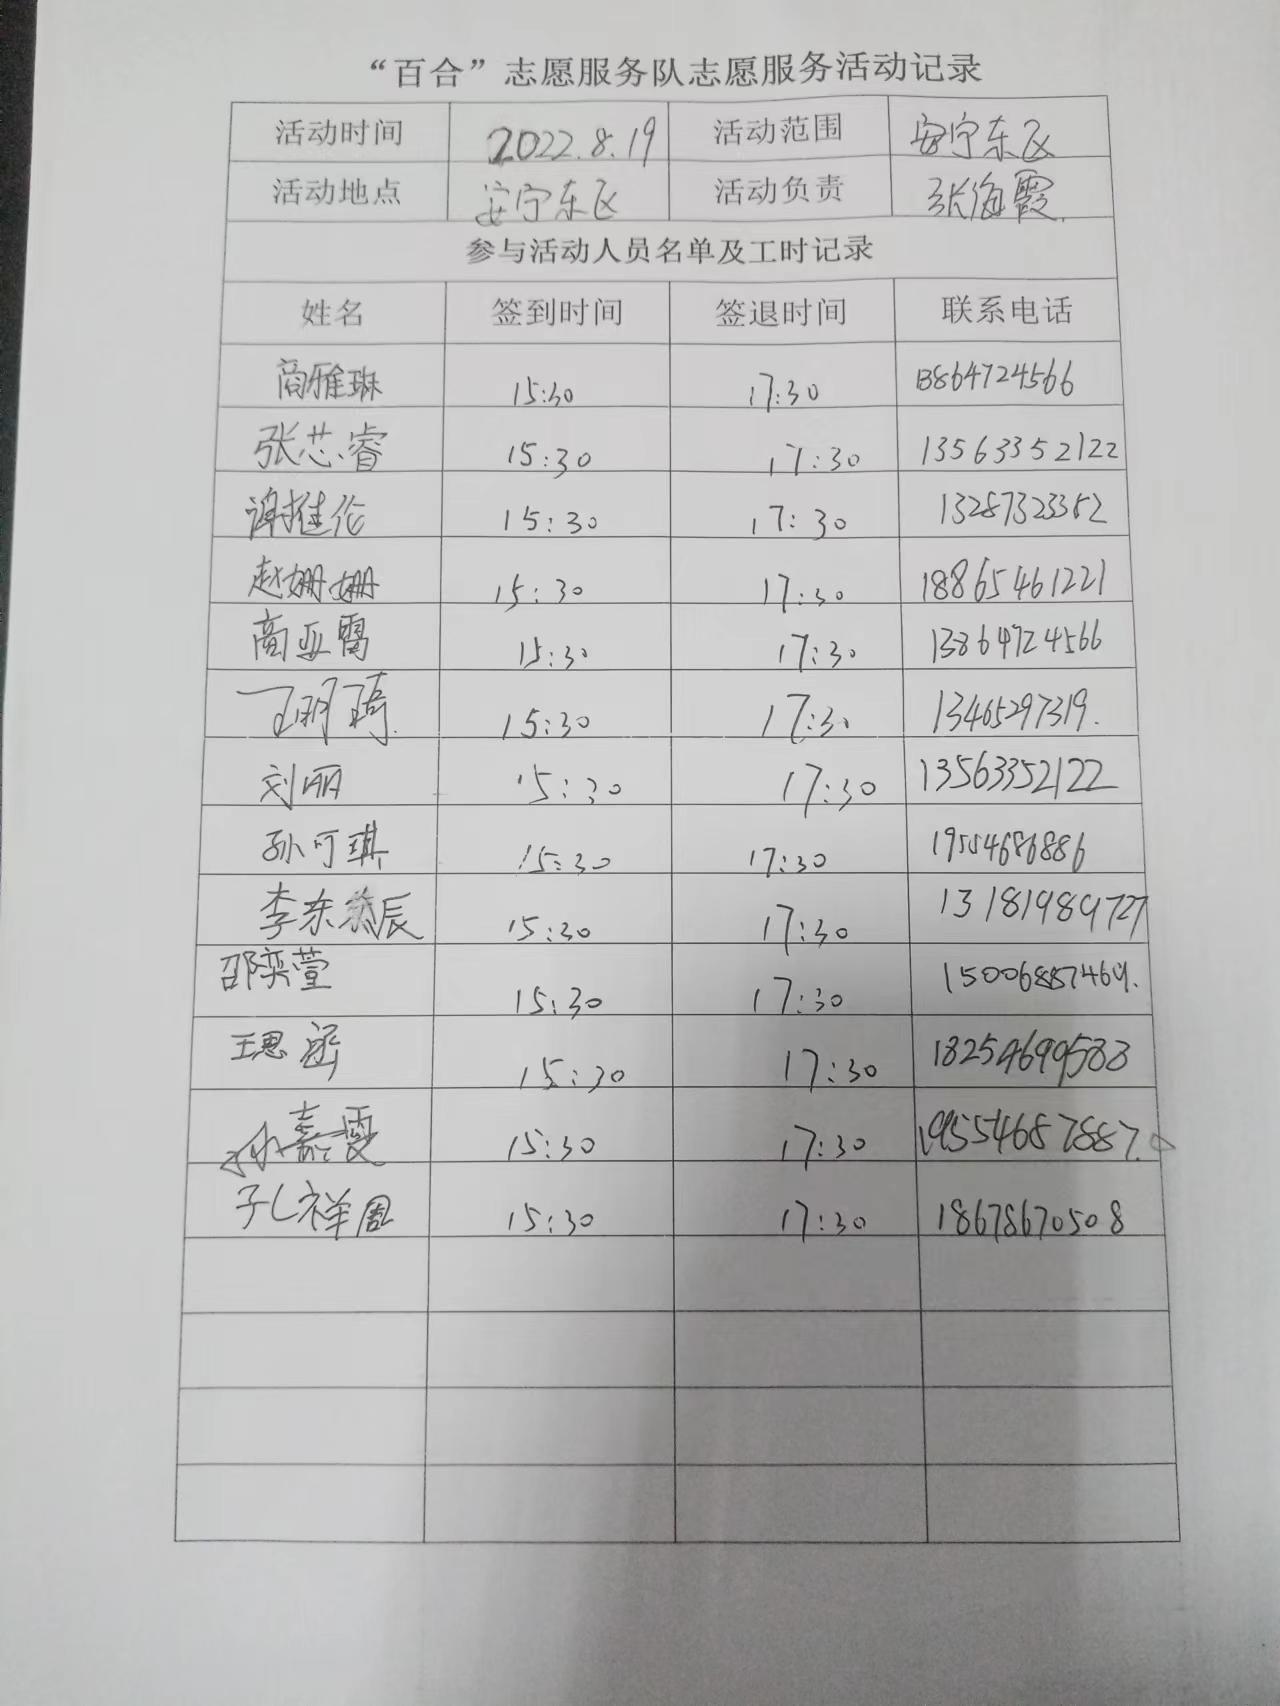 “百合”志愿服务队志愿服务活动记录
活动时间 2022.8.19 活动范围 安宁东区
活动地点 安宁东区 活动负责 张海霞
参与活动人员名单及工时记录
姓名 签到时间 签退时间 联系电话
商雅琳 15:30 17:30 13864724566
张芯睿 15:30 17:30 13563352122
谢推伦 15:30 17:30 13287323352
赵姗姗 15:30 17:30 18865461221
商亚雷 15:30 17:30 13864724566
丁玥琦 15:30 17:30 13465297319.
刘丽 15:30 17:30 13563352122
孙可琪 15:30 17:30 19554686886
李东辰 15:30 17:30 13181989727
邵奕萱 15:30 17:30 15006887469.
王思函 15:30 17:30 18254699583
嘉雯 15:30 17:30 19554687887.
孔祥周 15:30 17:30 18678670508